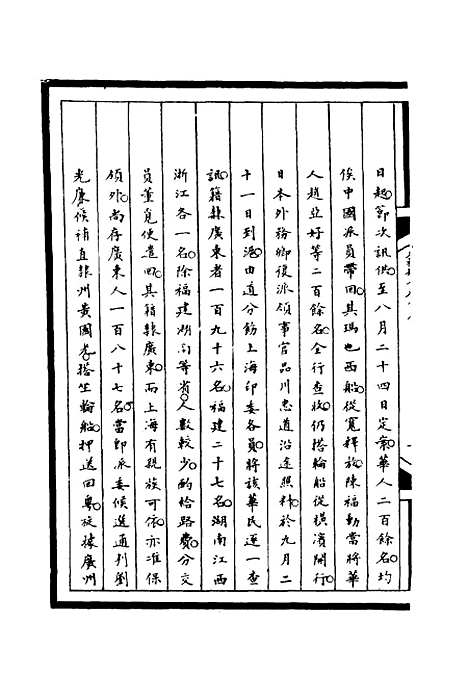 日趣節次訊供至八月二十四日定案華人二百餘名均
俟中國派員帶回其瑪也西船從寬釋放陳福勳當將華
人趙亞好等二百餘名全行查收仍搭輪船從橫濱開行
日本外務卿復派領事官品川忠道沿途照料於九月二
十一日到滬由道分飭上海印委各員將該華民逐一查
訊籍隸廣東者一百九十六名福建二十七名湖南江西
浙江各一名除福建湖南等省人數較少酌給路費分交
員董覓便遣回其籍隸廣東而上海有親族可依亦准保
領外尚存廣東人一百八十七名當即派委候選通判劉
光廉候補直隸州黃國光搭坐輪船押送回粵旋據廣州